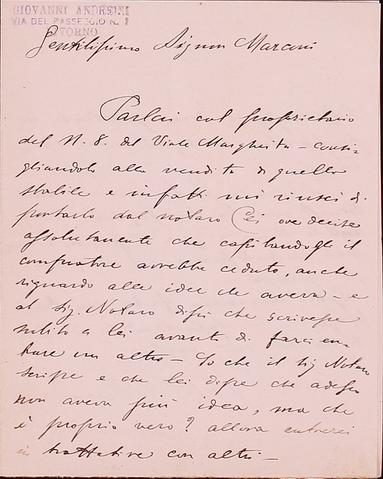 GIOVANNI ANDREINI
VIA DEL PASSEGGIO N. 1
LIVORNO
Gentilissimo Signor Marconi
Parlai col proprietario
del N. 8. del Viale Margherita - consi-
gliandolo alla vendita di quello
stabile e infatti mi riusci di
portarlo dal notaro ove decise
assolutamente che capitandogli il
compratore avrebbe ceduto, anche
riguardo alle idee che aveva - e
al Sig. Notaro dissi che scrivesse
subito a lei avanti di farci en-
trare un altro - So che il Sig Notaro
scrisse e che lei disse che adesso
non aveva più idea, ma che
è proprio vero? allora entrerei
in trattative con altri -